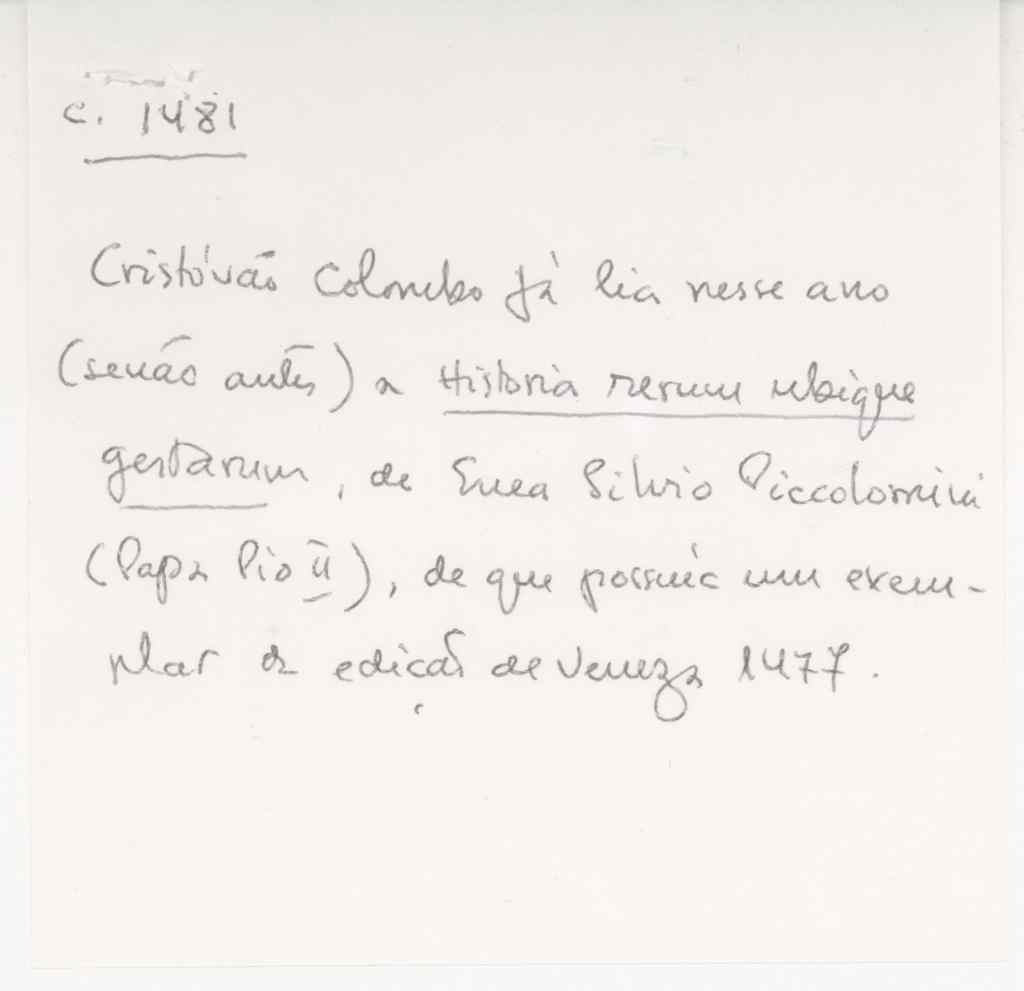 c. 1481
Cristóvão Colombo já lia nesse ano
(senão antes) a Historia rerum ubique
gestarum, de Enea Silvio Piccolomini
(Papa Pio II), de que possuía um exem-
plar da edição de Veneza 1477.